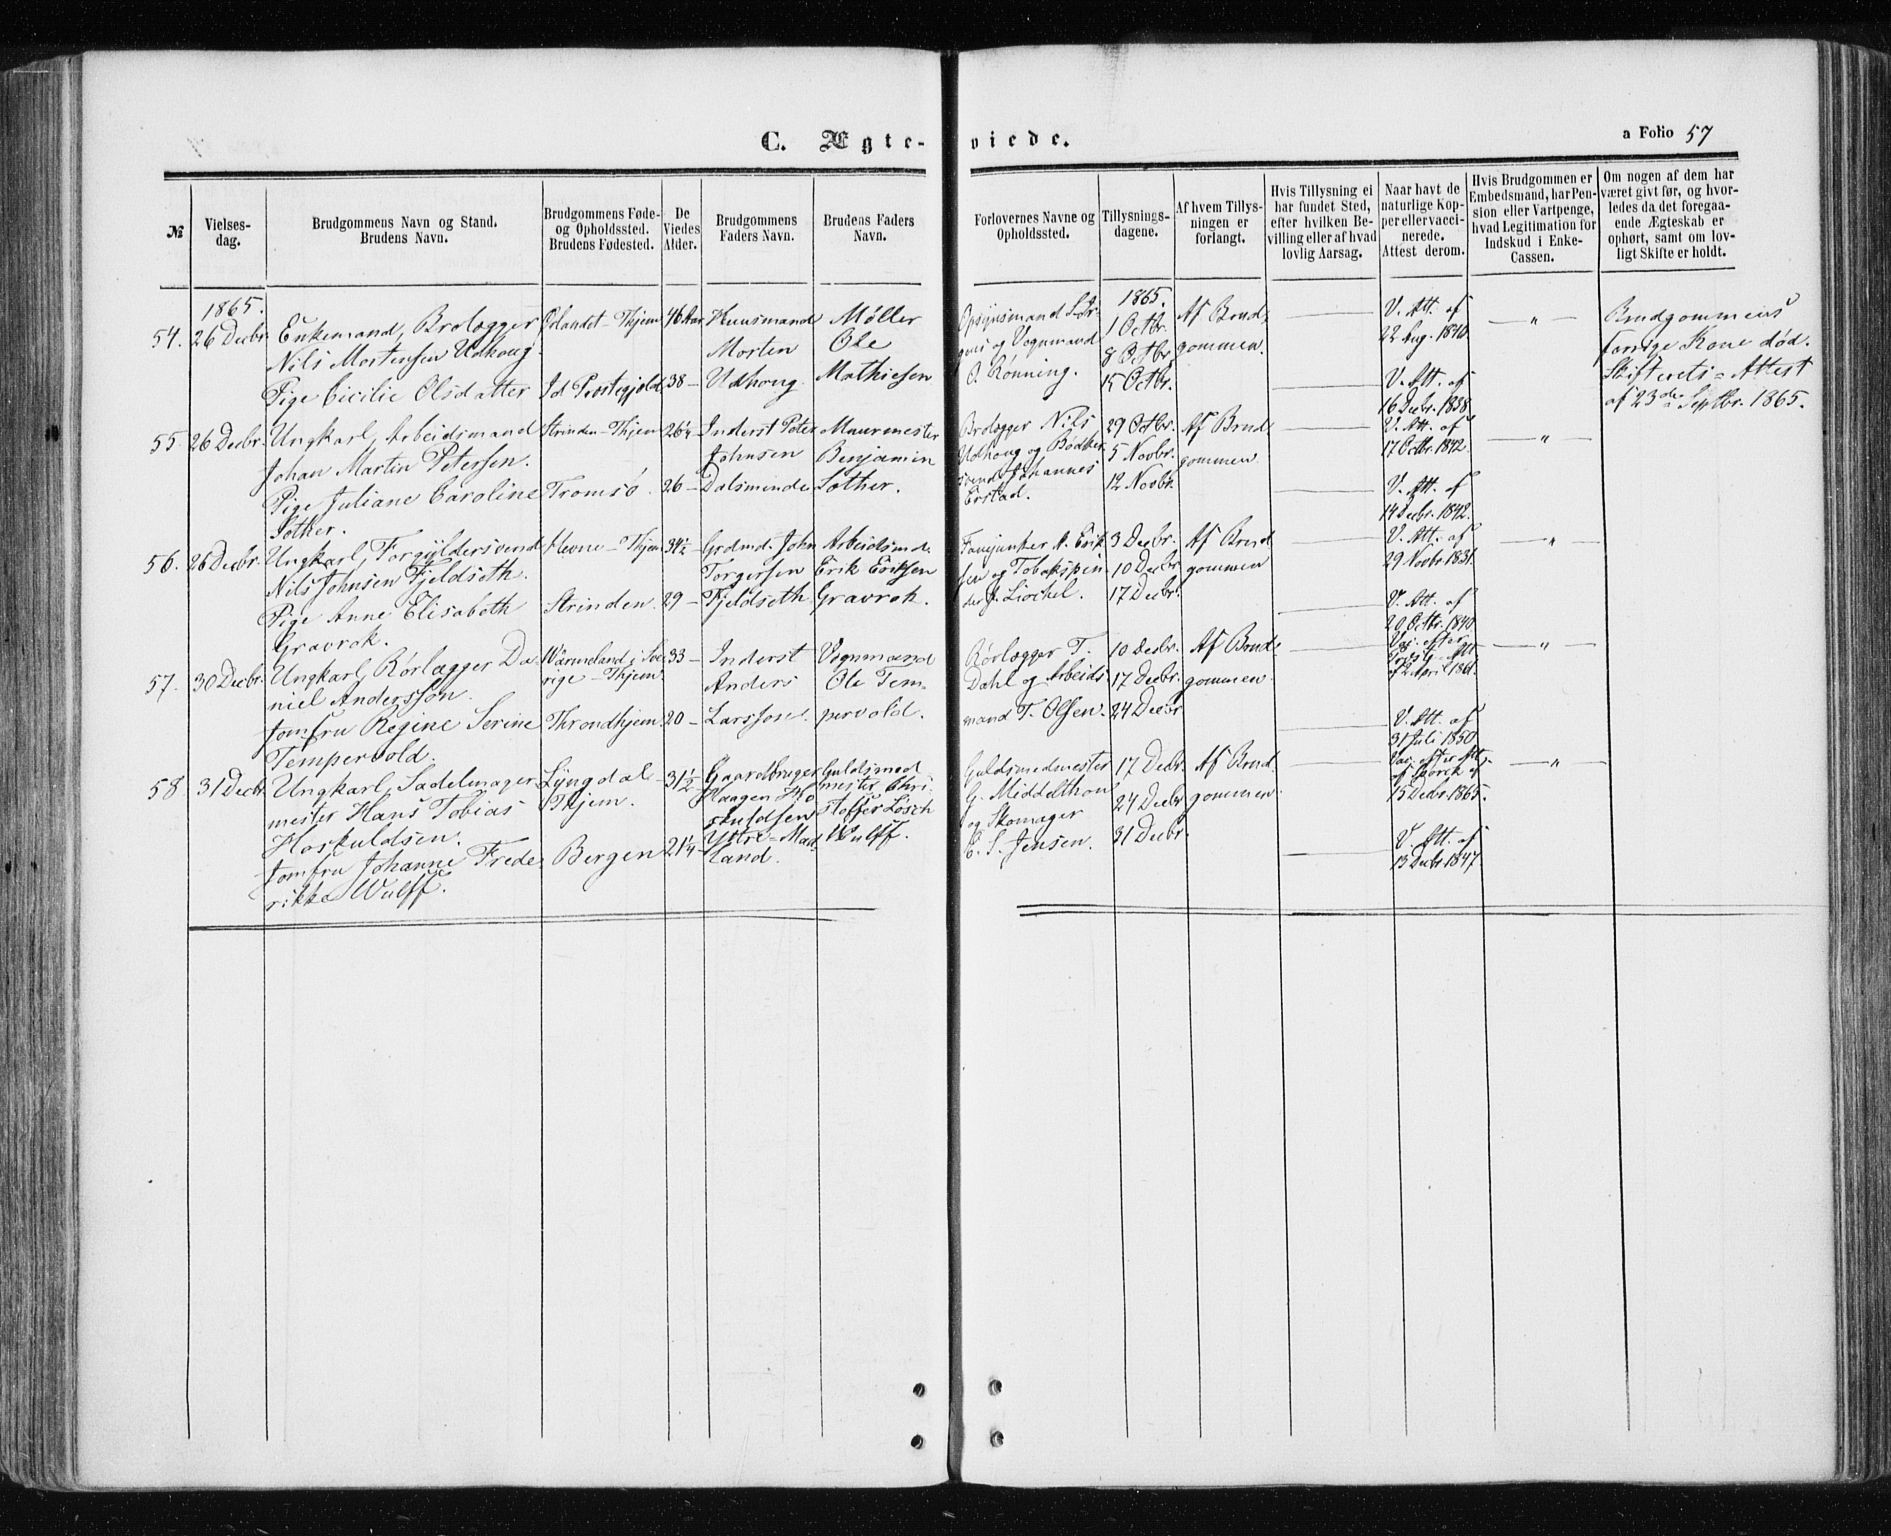 C. Ægte-viede.
a Folio 57
№
Vielses-
dag.
Brudgommens Navn og Stand.
Brudens Navn.
Brudgommens Føde-
og Opholdssted.
Brudens Fødested.
De
Viedes
Alder.
Brudgommens
Faders Navn.
Brudens Faders
Navn.
Forlovernes Navne og
Opholdssted.
Tillysnings-
dagene.
Af hvem Tillys-
ningen er
forlangt.
Hvis Tillysning ei
har fundet Sted,
efter hvilken Be-
villing eller af hvad
lovlig Aarsag.
Naar havt de
naturlige Kop-
per eller vacci-
nerede.
Attest derom.
Hvis Brudgommen er
Embedsmand, har Pen-
sion eller Vartpenge,
hvad Legitimation for
Indskud i Enke-
Cassen.
Om nogen af dem har
været givt før, og hvor-
ledes da det foregaa-
ende Ægteskab er
ophørt, samt om lov-
ligt Skifte er holdt.
1865.
54.
26 Decbr.
Enkemand, Brolægger
Nils Mortensen Udhoug.
Pige Cicilie Olsdatter
Ørlandet - Thjem
Id Præstegjeld
46 Aar
38 -
Huusmand
Morten
Udhoug
Møller
Ole
Mathiesen
Opsynsmand S. Jør-
gens og Vognmand
O. Rønning.
1865.
1 Octbr.
8 Octbr.
15 Octbr.
Af Brud
gommen.
V. Att. af
22 Aug. 1840
V. Att. af
16 Decbr. 1838.
"
Brudgommens
forrige Kone død.
Skifterets Attest
af 23de Septbr. 1865.
55.
26 Decbr.
Ungkarl, Arbeidsmand
Johan Martin Petersen.
Pige Juliane Caroline
Sother.
Strinden - Thjem
Tromsø.
26¼ -
26 -
Inderst Peter
Johnsen
Dalsminde
Muurmester
Benjamin
Sother.
Brolægger Nils
Udhoug og Bødker
svend Johannes
Erstad.
29 Octbr.
5 Novbr.
12 Novbr.
Af Brud
gommen
V. Att. af
17 Octbr. 1842.
V. Att. af
14 Decbr. 1842.
"
56.
26 Decbr.
Ungkarl, Forgyldersvend
Nils Johnsen Fjeldseth.
Pige Anne Elisabeth
Gravrok.
Hevne - Thjem
Strinden.
34½ -
29 -
Grdmd. John
Torgersen
Fjeldseth
Arbeidsmd.
Erik Eriksen
Gravrok.
Fanejunker A. Erik
sen og Tobakspin
der J. Liochel.
3 Decbr.
10 Decbr.
17 Decbr.
Af Brud
gommen
V. Att. af
29 Novbr. 1831.
V. Att. af
20 Octbr. 1840
"
57.
30 Decbr.
Ungkarl, Rørlægger Da
niel Anderssøn.
Jomfru Regine Serine
Tempervold.
Wärmeland i Sve
rige - Thjem
Throndhjem.
33 -
20 -
Inderst
Anders
Larsson.
Vognmand
Ole Tem
pervold.
Rørlægger T.
Dahl og Arbeids
mand T. Olsen.
10 Decbr.
17 Decbr.
24 Decbr
Af Brud
gommen
Vac. efter
af 2 April 1861.
V. Att. af
31 Juli 1850
"
58.
31 Decbr
Ungkarl, Sadelmager
mester Hans Tobias
Hoskuldsen.
Jomfru Johanne Frede
rikke Wulff.
Lyngdal -
Thjem.
Bergen
31½ -
21¼ -
Gaardbruger
Haagen Ho
skuldsen
Yttre-Mad
land.
Guldsmed
mester Chri
stoffer Løsch
Wulff.
Guldsmedmester
G. Middelthon
og Skomager
E. S. Jensen.
17 Decbr.
24 Decbr
31 Decbr
Af Brud
gommen
Vac. efter Att.
15 Decbr. 1865.
V. Att. af
13 Decbr. 1847.
"